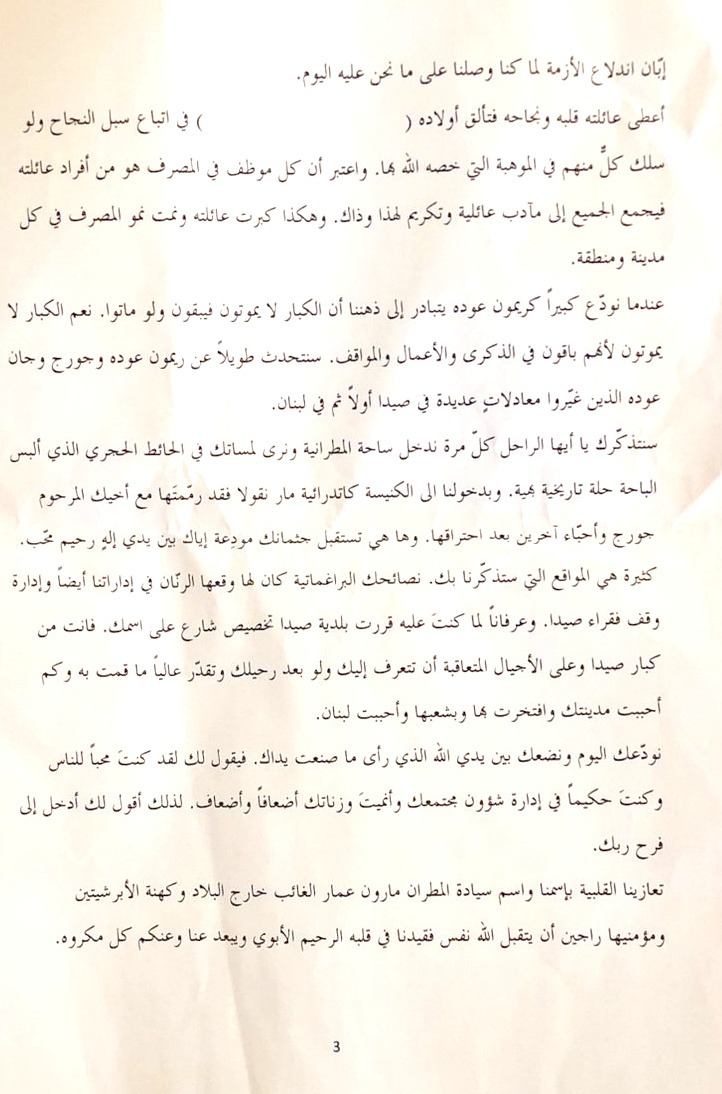 إبّان اندلاع الأزمة لما كنا وصلنا على ما نحن عليه اليوم.
أعطى عائلته قلبه ونجاحه فتألق أولاده (                    ) في اتباع سبل النجاح ولو
سلك كلٌّ منهم في الموهبة التي خصه الله بها. واعتبر أن كل موظف في المصرف هو من أفراد عائلته
فيجمع الجميع إلى مآدب عائلية وتكريم لهذا وذاك. وهكذا كبرت عائلته ونمت نمو المصرف في كل
مدينة ومنطقة.
عندما نودّع كبيراً كريمون عوده يتبادر إلى ذهننا أن الكبار لا يموتون فيبقون ولو ماتوا. نعم الكبار لا
يموتون لأنهم باقون في الذكرى والأعمال والمواقف. سنتحدث طويلاً عن ريمون عوده وجورج وجان
عوده الذين غيّروا معادلاتٍ عديدة في صيدا أولاً ثم في لبنان.
سنتذكّرك يا أيها الراحل كلّ مرة ندخل ساحة المطرانية ونرى لمساتك في الحائط الحجري الذي ألبس
الباحة حلة تاريخية بهية. وبدخولنا الى الكنيسة كاتدرائية مار نقولا فقد رمّمتَها مع أخيك المرحوم
جورج وأحبّاء آخرين بعد احتراقها. وها هي تستقبل جثمانك مودِعة إياك بين يدي إلهٍ رحيم محّب.
كثيرة هي المواقع التي ستذكّرنا بك. نصائحك البراغماتية كان لها وقعها الرنّان في إداراتنا أيضاً وإدارة
وقف فقراء صيدا. وعرفاناً لما كنتَ عليه قررت بلدية صيدا تخصيص شارع على اسمك. فانت من
كبار صيدا وعلى الأجيال المتعاقبة أن تتعرف إليك ولو بعد رحيلك وتقدّر عالياً ما قمت به وكم
أحببت مدينتك وافتخرت بها وبشعبها وأحببت لبنان.
نودّعك اليوم ونضعك بين يدي الله الذي رأى ما صنعت يداك. فيقول لك لقد كنتَ محباً للناس
وكنتَ حكيماً في إدارة شؤون مجتمعك وأنميتَ وزناتك أضعافاً وأضعاف. لذلك أقول لك أدخل إلى
فرح ربك.
تعازينا القلبية بإسمنا واسم سيادة المطران مارون عمار الغائب خارج البلاد وكهنة الأبرشيتين
ومؤمنيها راجين أن يتقبل الله نفس فقيدنا في قلبه الرحيم الأبوي ويبعد عنا وعنكم كل مكروه.
3